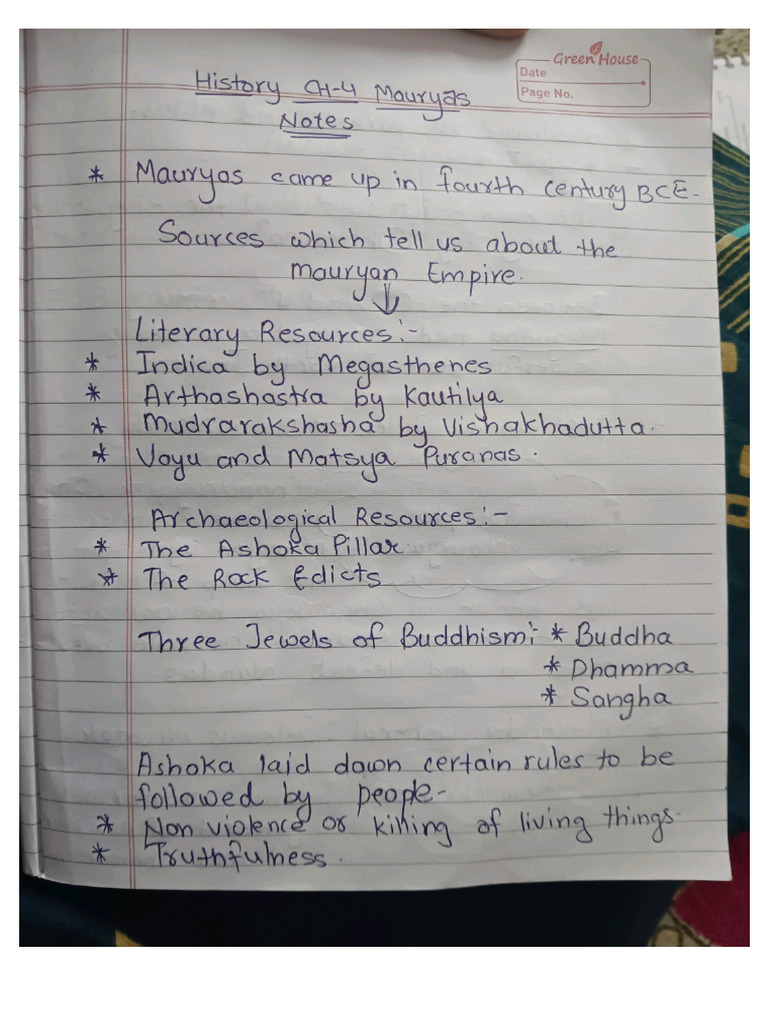 Green House
Date
Page No.
History CH-4 Mauryas
Notes
* Mauryas came up in fourth century BCE.
Sources which tell us about the
mauryan Empire.
↓
Literary Resources:-
* Indica by Megasthenes
* Arthashastra by Kautilya
* Mudrarakshasha by Vishakhadutta.
* Vayu and Matsya Puranas.
Archaeological Resources:-
* The Ashoka Pillar.
* The Rock Edicts
Three Jewels of Buddhism: * Buddha
* Dhamma
* Sangha
Ashoka laid down certain rules to be
followed by people-
* Non violence or killing of living things.
* Truthfulness.